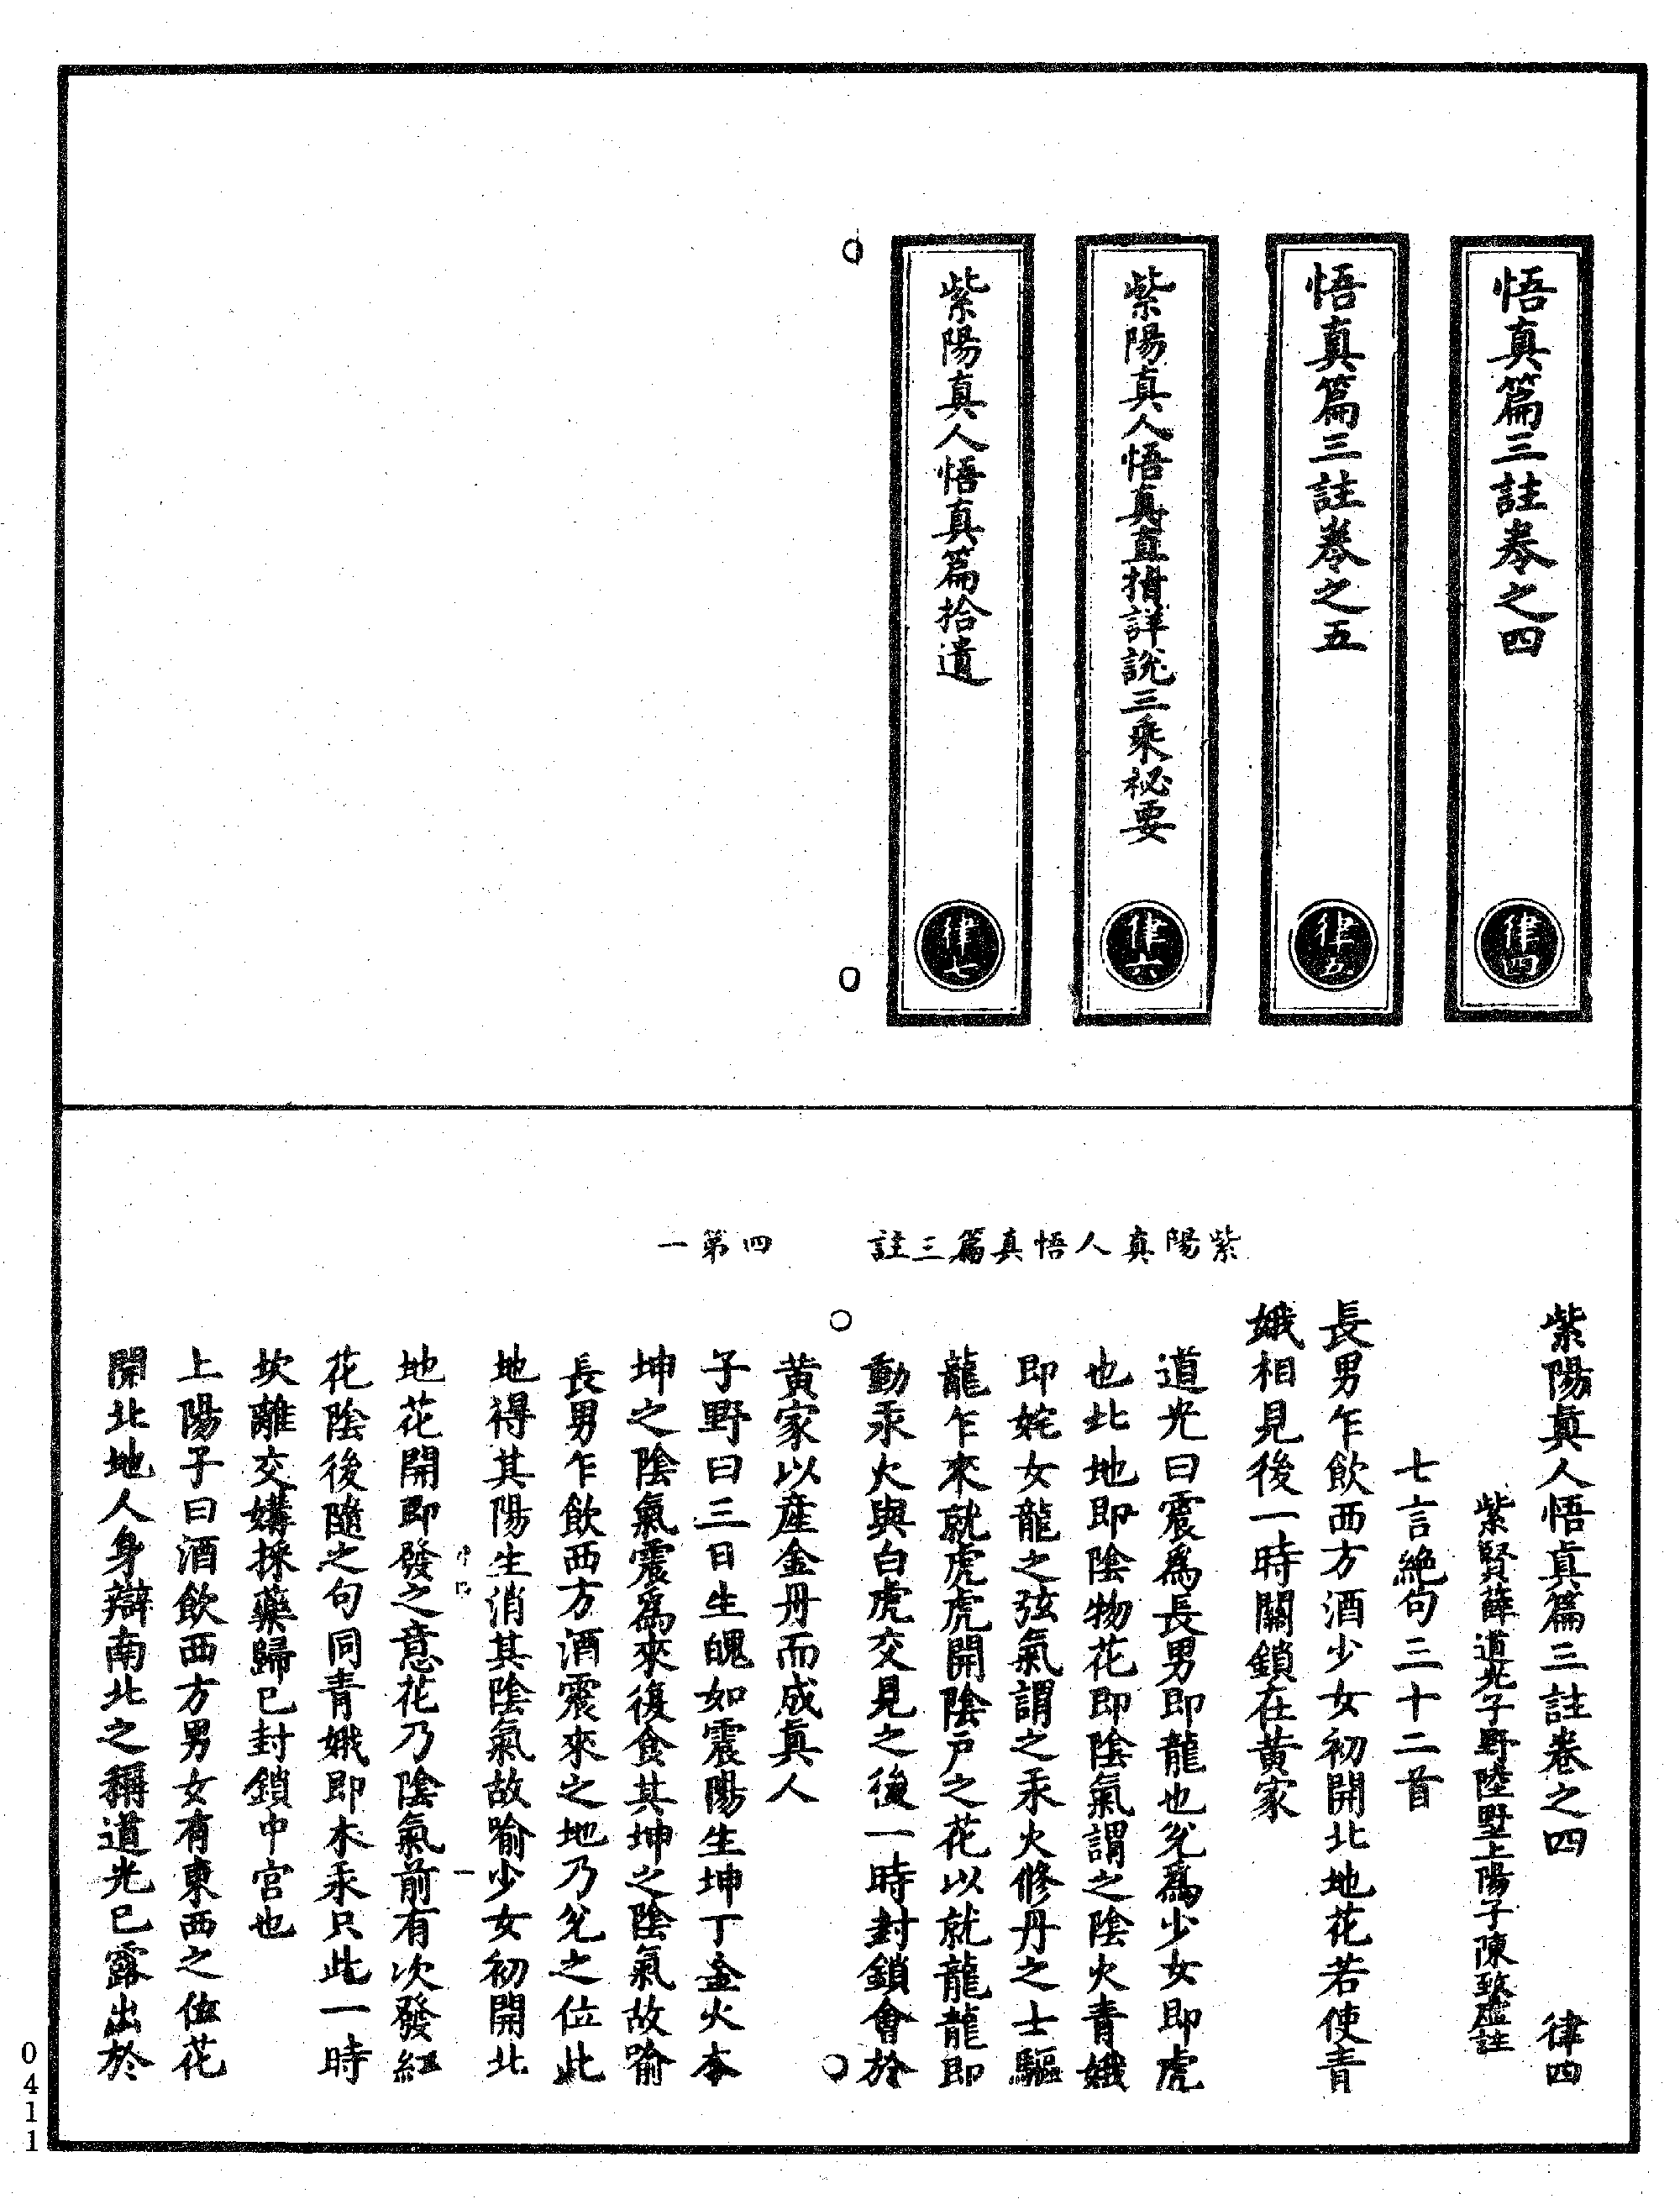 悟真篇三註卷之四
律四
悟真篇三註卷之五
律五
紫陽真人悟真直指詳說三乘秘要
律六
紫陽真人悟真篇拾遺
律七
紫陽真人悟真篇三註 四第一
紫陽眞人悟眞篇三註卷之四 律四
紫賢薛道光子野陸墅上陽子陳致虛註
七言絕句三十二首
長男乍飲西方酒少女初開北地花若使青
娥相見後一時關鎖在黄家
道光曰震爲長男即龍也兊爲少女即虎
也北地即陰物花即陰氣謂之陰火青娥
即姹女龍之弦氣謂之汞火修丹之士驅
龍乍來就虎虎開陰戶之花以就龍龍即
動汞火與白虎交見之後一時封鎖會於
黄家以産金丹而成眞人
子野曰三日生魄如震陽生坤丁金火本
坤之陰氣震爲來復食其坤之陰氣故喻
長男乍飲西方酒震來之地乃兊之位此
地得其陽生消其陰氣故喻少女初開北
地花開即發之意花乃陰氣前有次發紅
花陰後隨之句同青娥即木汞只此一時
坎離交媾採藥歸已封鎖中宮也
上陽子曰酒飲西方男女有東西之位花
開北地人身辯南北之稱道光已露出於
0411